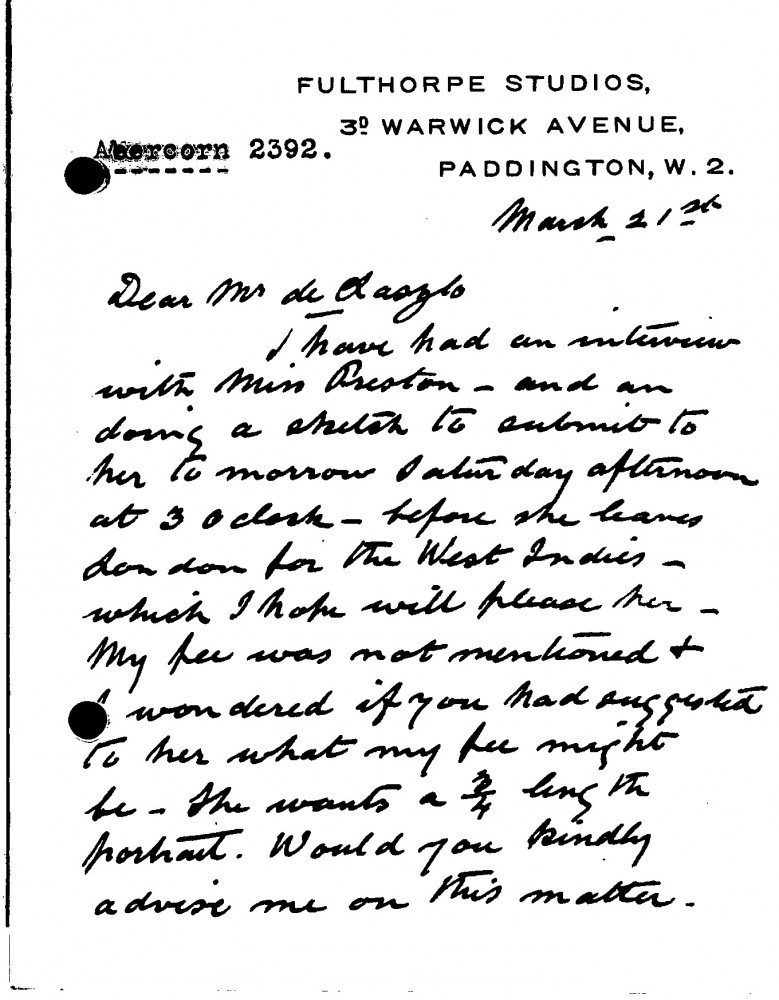 FULTHORPE STUDIOS,
3D WARWICK AVENUE,
Abercorn 2392.
PADDINGTON, W. 2.
March 21st
Dear Mr de Laszlo
I have had an interview
with Miss Preston – and am
doing a sketch to submit to
her to morrow Saturday afternoon
at 3 o clock – before she leaves
London for the West Indies –
which I hope will please her –
My fee was not mentioned &
I wondered if you had suggested
to her what my fee might
be – She wants a 3/4 length
portrait. Would you kindly
advise me on this matter.